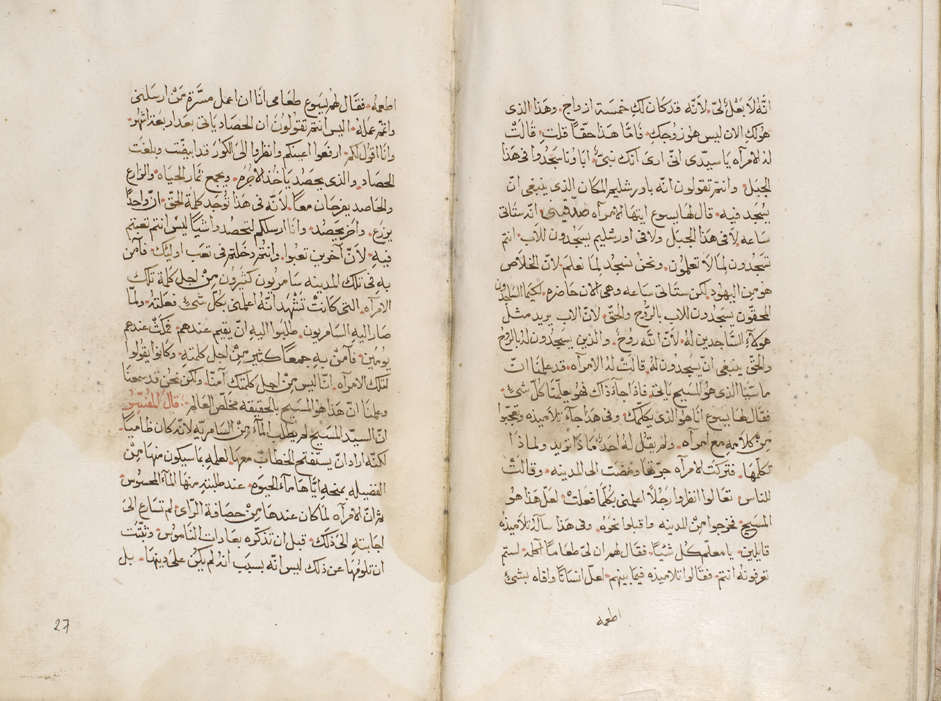 انه لا بعل لي. لانه قد كان لك خمسة ازواج. وهذا الذى
هو لك الان ليس هو زوجك. فاما هذا حقا قلت. قالت
له الامرأه يا سيدى انى ارى انك نبى. اباونا سجدوا فى هذا
الجبل. وانتم تقولون انه باورشليم المكان الذى ينبغى ان
يسجد فيه. قال لها يسوع ايتها الامرأه صدقينى. انه ستاتى
ساعه لا فى هذا الجبل ولا فى اورشليم يسجدون للاب. انتم
تسجدون لما لا تعلمون. ونحن نسجد لما نعلم لان الخلاص
هو من اليهود. لكن ستاتى ساعه وهى الان حاضره. لكيما الساجدون
المحقون يسجدون للاب بالروح والحق. لان الاب يريد مثل
هولاء الساجدين له. لان الله روح. والذين يسجدون له بالروح
والحق ينبغى ان يسجدون له. قالت له الامرأه. قد علمنا ان
ماسيا الذى هو المسيح ياتى. فاذا جاء ذاك فهو يعلمنا كل شى.
فقال لها يسوع انا هو الذى يكلمك. وفى هذا جاء تلاميذه وتعجبوا
من كلامه مع امرأه. ولم يقل له احد ماذا تريد ولماذا
تكلمها. فتركت الامرأه جرتها ومضت الى المدينه. وقالت
للناس. تعالوا انظروا رجلا اعلمنى بكلما فعلت. لعل هذا هو
المسيح. فخرجوا من المدينه واقبلوا نحوه. وفى هذا ساله تلاميذه
قايلين. يا معلم كل شيئا. فقال لهم ان لى طعاما اكله لستم
تعرفونه انتم. فقالوا تلاميذه فيما بينهم. لعل انسانا وافاه بشى
اطعمه
اطعمه. فقال لهم يسوع طعامى انا ان اعمل مسرة من ارسلنى
واتمم عمله. اليس انتم تقولون ان الحصاد ياتى بعد اربعة اشهر.
وانا اقول لكم. ارفعوا اعينكم وانظروا الى الكور قد ابيضت وبلغت
الحصاد. والذى يحصد ياخذ الاجره. ويجمع ثمار الحياه. والزارع
والحاصد يفرحان معا. لانه فى هذا توجد كلمة الحق. ان واحدا
يزرع. واخر يحصد. وانا ارسلكم لتحصدوا شيا ليس انتم تعبتم
فيه. لان آخرين تعبوا. وانتم دخلتم فى تعب اوليك. فآمن
به فى تلك المدينه سامريون كثيرون من اجل كلمة تلك
الامرأه. التى كانت تشهد انه اعلمنى بكل شى فعلته. ولما
صار اليه السامريون. طلبوا اليه ان يقيم عندهم. فمكث عندهم
يومين. فآمن به جمعا كثير من اجل كلمته. وكانوا يقولوا
لتلك الامرأه. انا ليس من اجل كلمتك آمنا. ولكن نحن قد سمعنا
وعلمنا ان هذا هو المسيح بالحقيقه مخلص العالم. قال المفسر
ان السيد المسيح لم يطلب الماء من السامريه لانه كان ظاميا.
لكنه اراد ان يستفتح الخطاب معها. لعلمه بما سيكون منها من
الفضيله. بمنحه اياها ماء الحيوه. عند طلبته منها الماء المحسوس
ثم ان الامرأه لما كان عندها من حصافة الراى. لم تسارع الى
اجابته الى ذلك. قبل ان تذكره بعادات الناموس. وثبتت
ان تلومها عن ذلك ليس انه بسبب انه لم يكن على دينها. بل
27